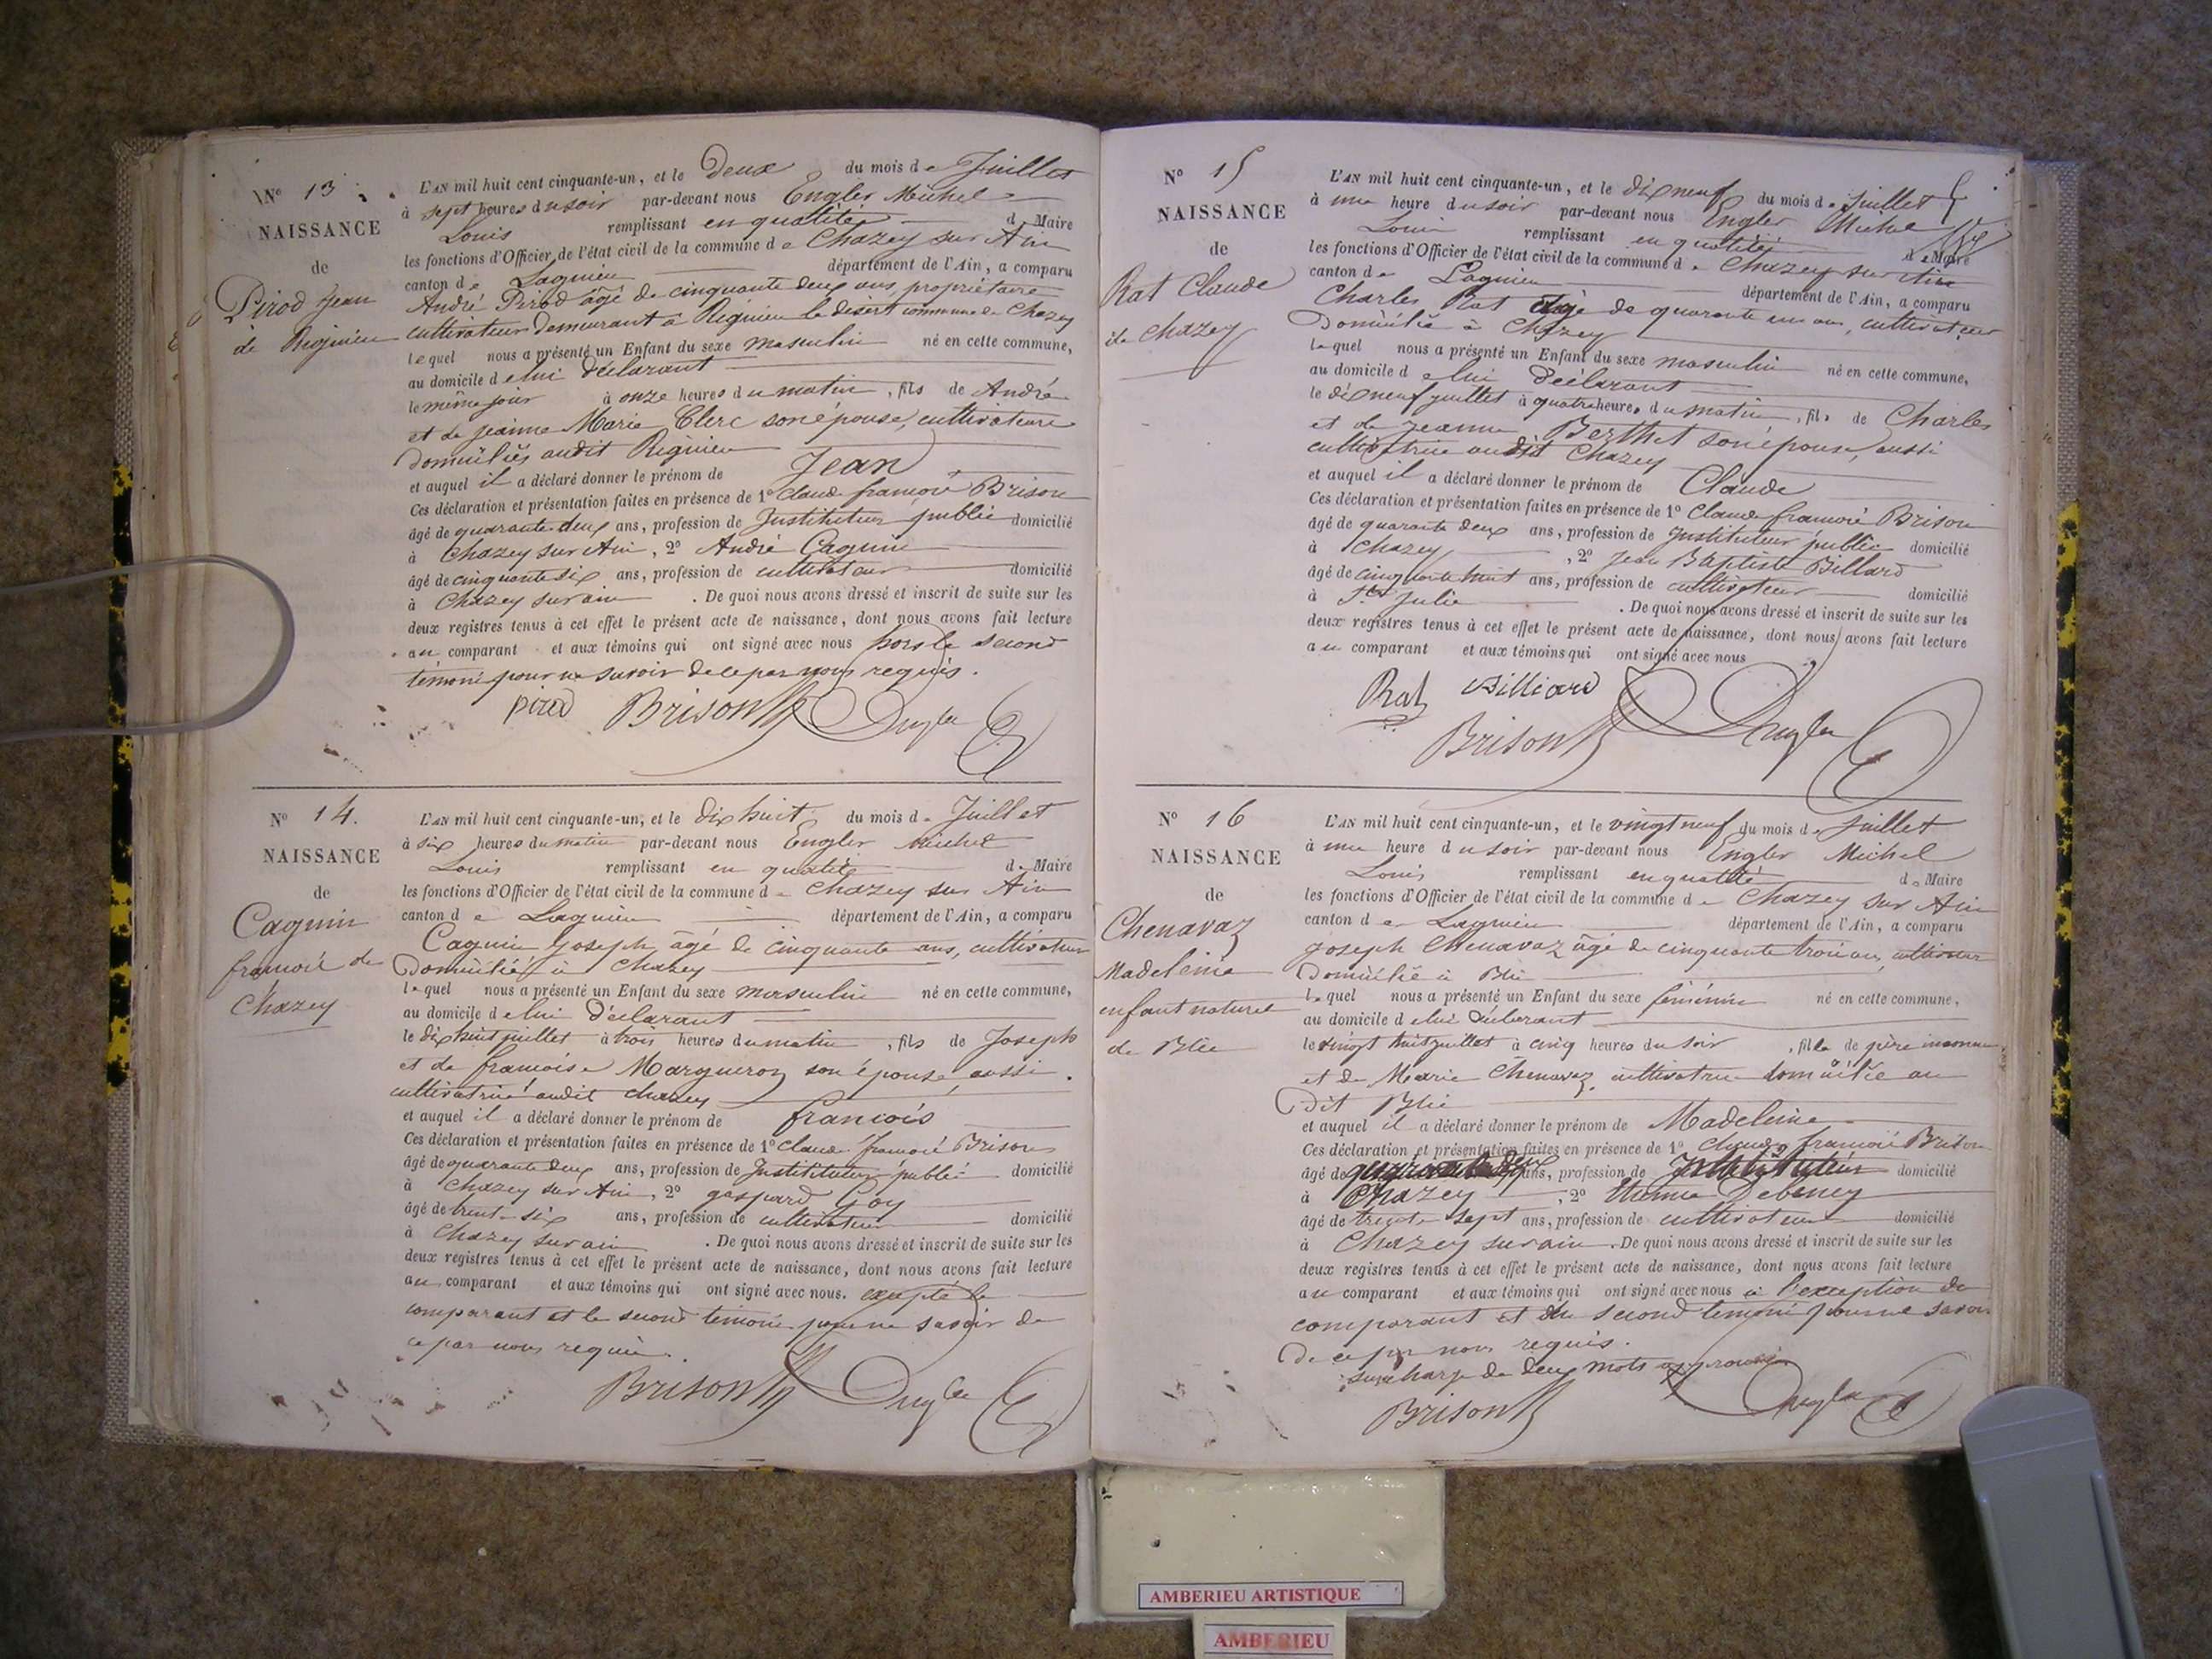 N° 13
NAISSANCE
de
Pirod Jean
de Rignieu
L'AN mil huit cent cinquante-un, et le Deux du mois de Juillet
à sept heures du soir par-devant nous Engler Michel
Louis remplissant en qualité de Maire
les fonctions d'Officier de l'état civil de la commune de Chazey sur Ain
canton de Lagnieu département de l'Ain, a comparu
André Pirod âgé de cinquante deux ans, propriétaire
cultivateur demeurant à Rignieu le désert commune de Chazey
lequel nous a présenté un Enfant du sexe masculin né en cette commune,
au domicile de lui déclarant
le même jour à onze heures du matin, fils de André
et de jeanne Marie Clerc son épouse, cultivateurs
domiciliés audit Rignieu
et auquel il a déclaré donner le prénom de Jean
Ces déclaration et présentation faites en présence de 1° Claude françois Brison
âgé de quarante deux ans, profession de Instituteur public domicilié
à Chazey sur Ain, 2° André Cagnin
âgé de cinquante six ans, profession de cultivateur domicilié
à Chazey sur ain. De quoi nous avons dressé et inscrit de suite sur les
deux registres tenus à cet effet le présent acte de naissance, dont nous avons fait lecture
au comparant et aux témoins qui ont signé avec nous hors le second
témoin pour ne savoir de ce par nous requis.
pirod Brison Engler
N° 14.
NAISSANCE
de
Cagnin
françois de
Chazey
L'AN mil huit cent cinquante-un, et le dix huit du mois de Juillet
à six heures du matin par-devant nous Engler Michel
Louis remplissant en qualité de Maire
les fonctions d'Officier de l'état civil de la commune de Chazey sur Ain
canton de Lagnieu département de l'Ain, a comparu
Cagnin Joseph, âgé de cinquante ans, cultivateur
domicilié à Chazey
lequel nous a présenté un Enfant du sexe masculin né en cette commune,
au domicile de lui déclarant
le dix huit juillet à trois heures du matin, fils de Joseph
et de françoise Margueron son épouse aussi
cultivatrice audit chazey
et auquel il a déclaré donner le prénom de francois
Ces déclaration et présentation faites en présence de 1° Claude françois Brison
âgé de quarante deux ans, profession de Instituteur public domicilié
à Chazey sur Ain, 2° gaspard Goy
âgé de trente six ans, profession de cultivateur domicilié
à Chazey sur ain. De quoi nous avons dressé et inscrit de suite sur les
deux registres tenus à cet effet le présent acte de naissance, dont nous avons fait lecture
au comparant et aux témoins qui ont signé avec nous. excepté le
comparant et le second témoin pour ne savoir de
ce par nous requis.
Brison Engler
N° 15
NAISSANCE
de
Rat Claude
de Chazey
L'AN mil huit cent cinquante-un, et le dix neuf du mois de Juillet
à une heure du soir par-devant nous Engler Michel
Louis remplissant en qualité de Maire
les fonctions d'Officier de l'état civil de la commune de Chazey sur Ain
canton de Lagnieu département de l'Ain, a comparu
Charles Rat âgé de quarante un ans, cultivateur
domicilié à Chazey
lequel nous a présenté un Enfant du sexe masculin né en cette commune,
au domicile de lui déclarant
le dix neuf juillet à quatre heures du matin, fils de Charles
et de Jeanne Berthet son épouse, aussi
cultivatrice audit Chazey
et auquel il a déclaré donner le prénom de Claude
Ces déclaration et présentation faites en présence de 1° Claude françois Brison
âgé de quarante deux ans, profession de Instituteur public domicilié
à Chazey, 2° Jean Baptiste Billard
âgé de cinquante huit ans, profession de cultivateur domicilié
à Ste Julie. De quoi nous avons dressé et inscrit de suite sur les
deux registres tenus à cet effet le présent acte de naissance, dont nous avons fait lecture
au comparant et aux témoins qui ont signé avec nous
Rat Billiard
Brison Engler
N° 16
NAISSANCE
de
Chenavaz
Madeleine
enfant naturel
de Blie
L'AN mil huit cent cinquante-un, et le vingt neuf du mois de Juillet
à une heure du soir par-devant nous Engler Michel
Louis remplissant en qualité de Maire
les fonctions d'Officier de l'état civil de la commune de Chazey sur Ain
canton de Lagnieu département de l'Ain, a comparu
Joseph Chenavaz âgé de cinquante trois ans, cultivateur
domicilié à Blie
lequel nous a présenté un Enfant du sexe féminin né en cette commune,
au domicile de lui déclarant
le vingt huit juillet à cinq heures du soir, fille de père inconnu
et de Marie Chenavaz, cultivatrice domiciliée au
dit Blie
et auquel il a déclaré donner le prénom de Madeleine
Ces déclaration et présentation faites en présence de 1° Claude françois Brison
âgé de quarante deux ans, profession de Instituteur domicilié
à Chazey, 2° Etienne Debeney
âgé de trente sept ans, profession de cultivateur domicilié
à Chazey sur ain. De quoi nous avons dressé et inscrit de suite sur les
deux registres tenus à cet effet le présent acte de naissance, dont nous avons fait lecture
au comparant et aux témoins qui ont signé avec nous à l'exception du
comparant et du second témoin pour ne savoir
de ce par nous requis.
surcharge de deux mots approuvée
Brison Engler
AMBERIEU ARTISTIQUE
AMBERIEU